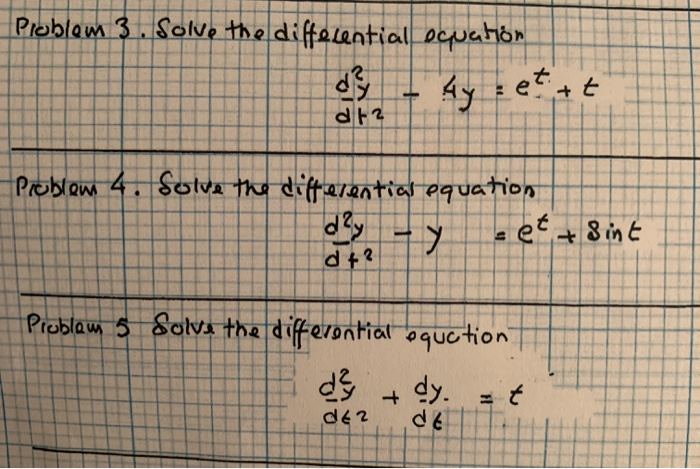 Problem 3. Solve the differential equation
d²y/dt² - 4y = e^t + t
Problem 4. Solve the differential equation
d²y/dt² - y = e^t + Sint
Problem 5 Solve the differential equation
d²y/dt² + dy/dt = t